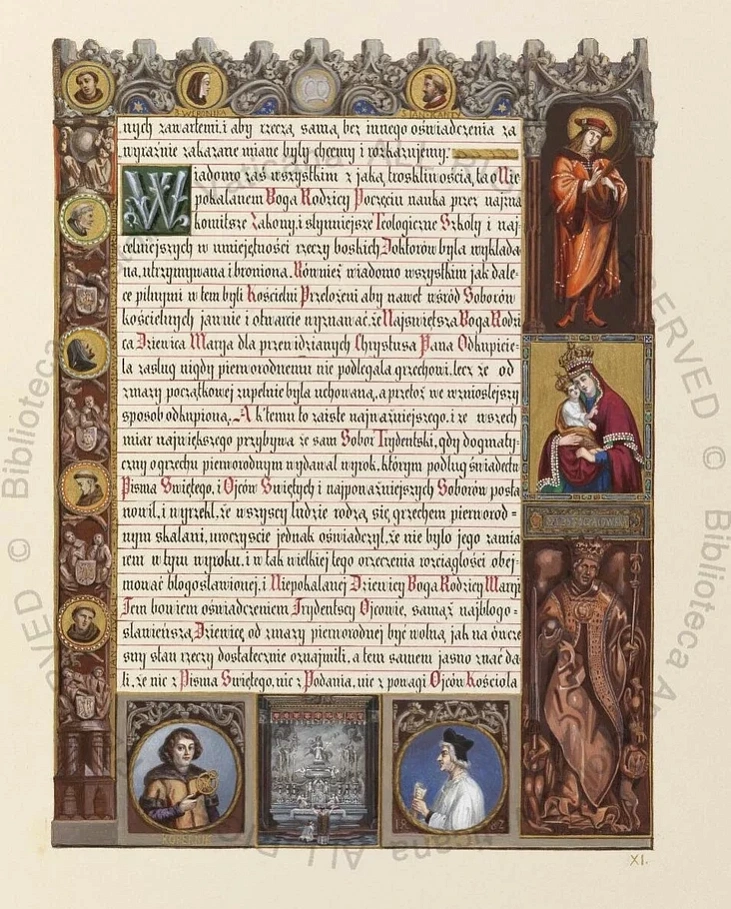 S. WERONIKA
S. JAN. KANTY.
nych zawartemi, i aby rzeczą samą, bez innego oświadczenia za
wyraźnie zakazane miane były chcemy i rozkazujemy.
Wiadomo zaś wszystkim z jaką troskliwością, ta o Nie
pokalanem Boga Rodzicy Poczęciu nauka przez najzna
komitsze Zakony, i słynniejsze Teologiczne Szkoły i naj=
celniejszych w umiejętności rzeczy boskich Doktorów była wykłada
na, utrzymywana i broniona. Również wiadomo wszystkim jak dale=
ce pilnymi w tem byli Kościelni Przełożeni aby nawet wśród Soborów
kościelnych jawnie i otwarcie wyznawać, że Najświętsza Boga Rodzi
ca Dziewica Marya dla przewidzianych Chrystusa Pana Odkupicie=
la zasług nigdy pierworodnemu nie podlegała grzechowi, lecz że od
zmazy początkowej zupełnie była uchowaną, a przetoż we wznioślejszy
sposób odkupioną. A k'temu to zaiste najważniejszego, i ze wszech
miar największego przybywa że sam Sobór Trydentski, gdy dogmaty=
czny o grzechu pierworodnym wydawał wyrok, którym podług świadectw
Pisma Świętego, i Ojców Świętych i najpoważniejszych Soborów posta
nowił, i wyrzekł, że wszyscy ludzie rodzą się grzechem pierworod=
nym skalani, uroczyście jednak oświadczył, że nie było jego zamia
rem w tym wyroku, i w tak wielkiej tego orzeczenia rozciągłości obej=
mować błogosławionej, i Niepokalanej Dziewicy Boga Rodzicy Maryi
Tem bowiem oświadczeniem Trydentscy Ojcowie, samąż najbłogo=
sławieńszą Dziewicę od zmazy pierworodnej być wolną jak na ówcze
sny stan rzeczy dostatecznie oznajmili, a tem samem jasno znać da
li, że nic z Pisma Świętego, nic z Podania, nic z powagi Ojców Kościoła
18 62
XI.
© Biblioteca